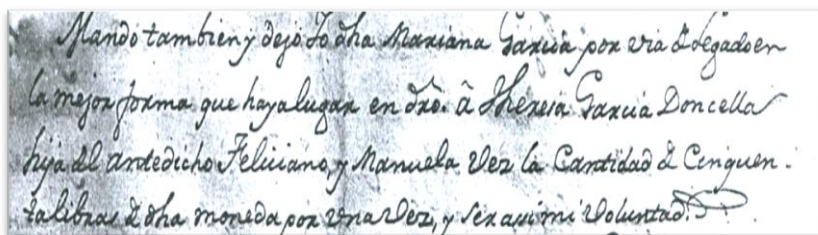 Mando tambien y dejo Yo dha Mariana Garcia por via d legado en
la mejor forma que haya lugar en dro. â Theresa Garcia Doncella
hija del antedicho Feliciano, y Manuela Vez la Cantidad d Cinquen-
ta libras d dha moneda por una Vez, y ser assi mi Voluntad.